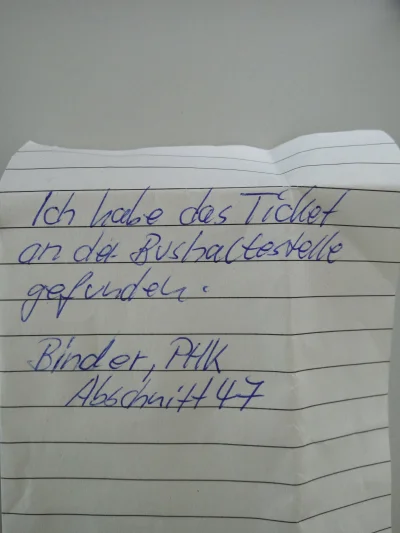 Ich habe das Ticket
an der Bushaltestelle
gefunden.
Binder, PHK
Abschnitt 47